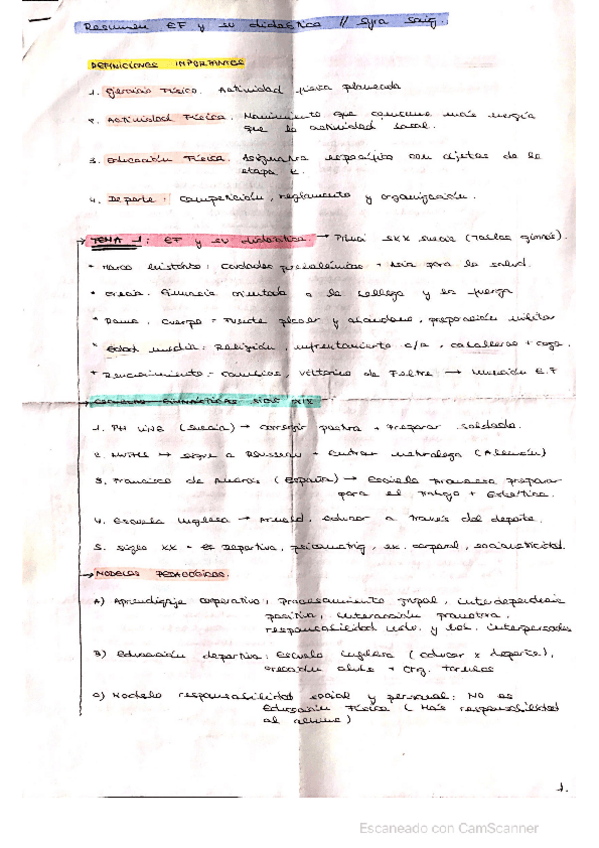 Resumen EF y su didáctica // Syra
DEFINICIONES IMPORTANTES
1. Ejercicio Físico. Actividad física planeada
2. Actividad Física. Movimiento que consume más energía
que la actividad basal.
3. Educación Física. Asignatura específica con objetos de la
etapa
4. Deporte: Competición, reglamento y organización.
TEMA 1: EF y su didáctica. → SXX Suecia (Tablas gimnás).
* Marco histórico: + para la salud.
* Grecia. Gimnasia orientada a la belleza y la fuerza
* Roma. Cuerpo = Fuente placer y abandono, preparación militar
* Edad media: Religión, enfrentamiento c/a, caballeros + caza.
* Renacimiento: Cambios, Vittorino de Feltre → E.F
ESCUELAS GIMNÁSTICAS SIGLO XIX
1. PH LING (Suecia) → corregir postura + preparar soldado.
2. → sigue a Rousseau + naturaleza (Alemán)
3. Francisco de Amorós (España) → Escuela Francesa preparar
para el trabajo +
4. Escuela Inglesa → Arnold. educar a través del deporte.
5. Siglo XX = es Deportiva, psicomotriz, ex. corporal, sociomotricidad.
MODELOS PEDAGÓGICOS.
A) Aprendizaje cooperativo: procesamiento grupal, interdependencia
positiva, interacción promotora,
responsabilidad indv. y hab. interpersonales
B) Educación deportiva: Escuela inglesa (educar x deporte),
creación clubs + Org. torneos
C) Modelo responsabilidad social y personal: No es
Educación Física (Más responsabilidad
al alumno)
1.
Escaneado con CamScanner